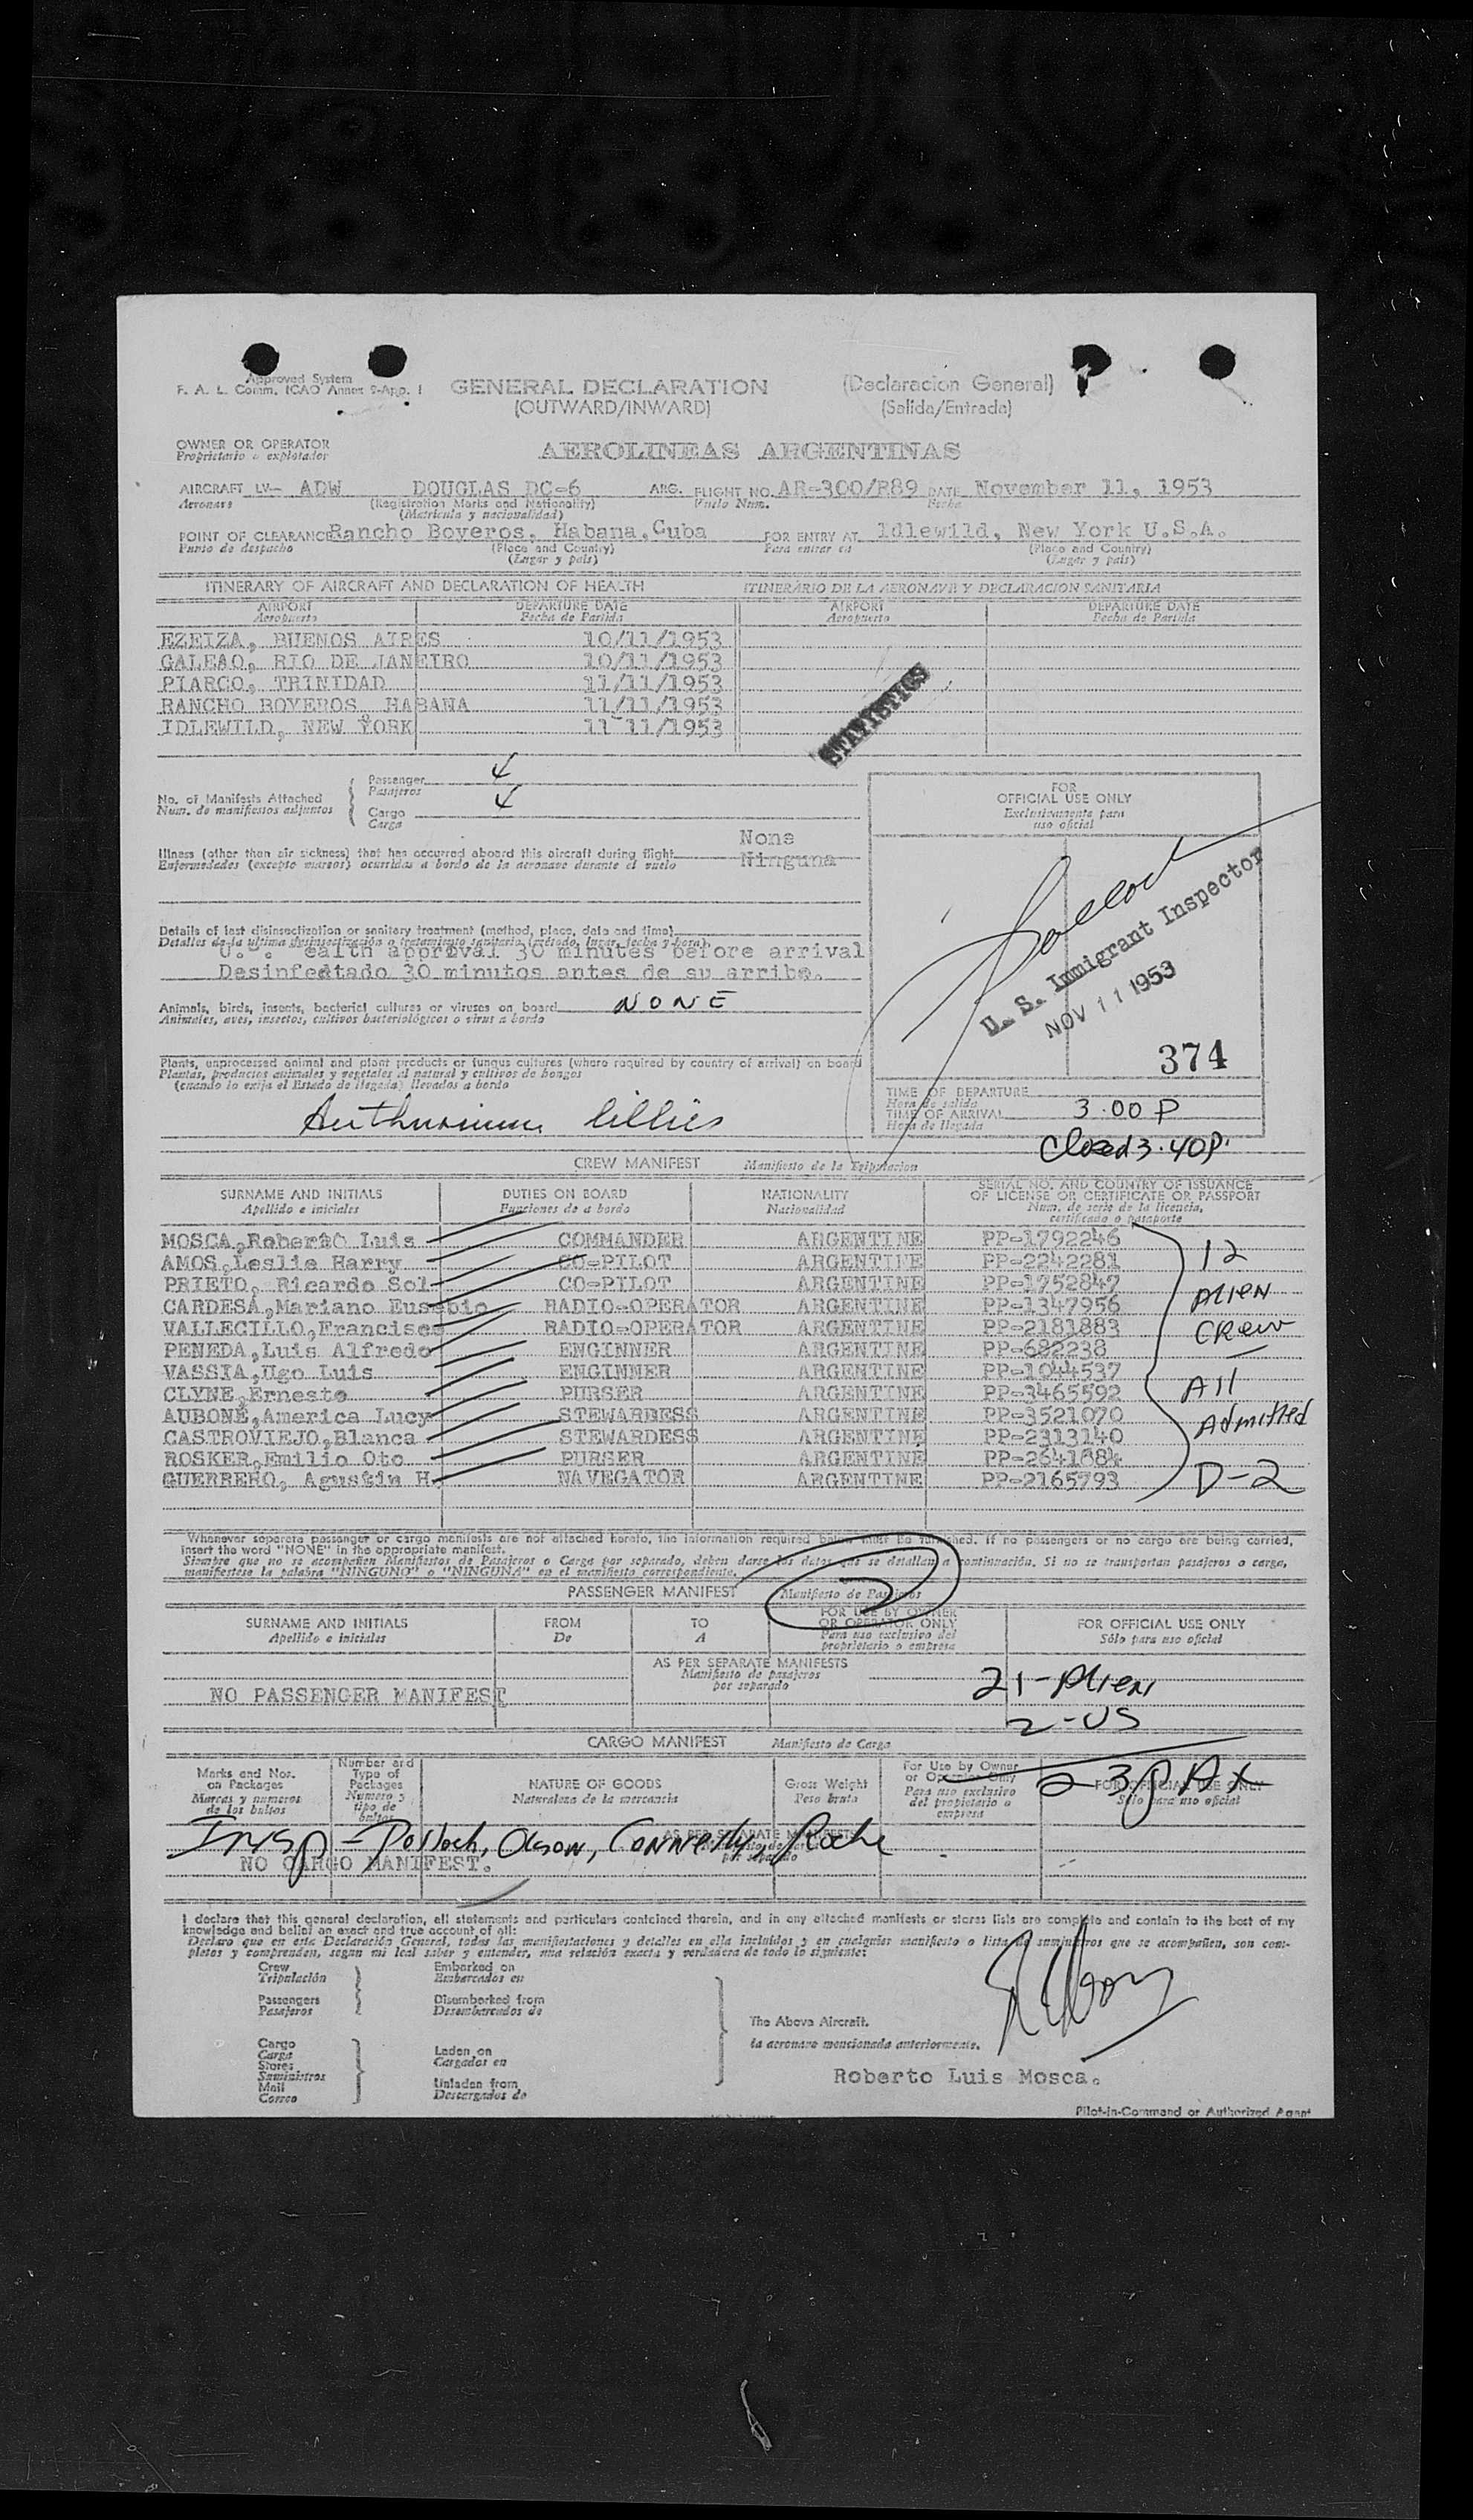 Approved System
F. A. L. Comm. ICAO Annex 9-App. 1
GENERAL DECLARATION (Declaracion General)
(OUTWARD/INWARD) (Salida/Entrada)
OWNER OR OPERATOR
Proprietario o explotador
AEROLINEAS ARGENTINAS
AIRCRAFT LV- ADW DOUGLAS DC-6 ARG. FLIGHT NO. AR-300/R89 DATE November 11, 1953
Aeronave (Registration Marks and Nationality) Vuelo Num. Fecha
(Matricula y nacionalidad)
POINT OF CLEARANCE Rancho Boyeros, Habana, Cuba FOR ENTRY AT Idlewild, New York U.S.A.
Punto de despacho (Place and Country) Para entrar en (Place and Country)
(Lugar y pais) (Lugar y pais)
ITINERARY OF AIRCRAFT AND DECLARATION OF HEALTH ITINERARIO DE LA AERONAVE Y DECLARACION SANITARIA
AIRPORT DEPARTURE DATE AIRPORT DEPARTURE DATE
Aeropuerto Fecha de Partida Aeropuerto Fecha de Partida
EZEIZA, BUENOS AIRES 10/11/1953
GALEAO, RIO DE JANEIRO 10/11/1953
PIARCO, TRINIDAD 11/11/1953
RANCHO BOYEROS HABANA 11/11/1953
IDLEWILD, NEW YORK 11 11/1953
STATISTICS
No. of Manifests Attached
Num. de manifiestos adjuntos
Passenger
Pasajeros
Cargo
Carga
None
Illness (other than air sickness) that has occurred aboard this aircraft during flight Ninguna
Enfermedades (excepto mareos) ocurridas a bordo de la aeronave durante el vuelo
FOR
OFFICIAL USE ONLY
Exclusivamente para
uso oficial
U. S. Immigrant Inspector
NOV 11 1953
374
Details of last disinsectization or sanitary treatment (method, place, date and time)
Detalles de la ultima desinsectización o tratamiento sanitario (método, lugar, fecha y hora)
ealth approval 30 minutes before arrival
Desinfectado 30 minutos antes de su arribo.
Animals, birds, insects, bacterial cultures or viruses on board NONE
Animales, aves, insectos, cultivos bacteriológicos o virus a bordo
Plants, unprocessed animal and plant products or fungus cultures (where required by country of arrival) on board
Plantas, productos animales y vegetales al natural y cultivos de hongos
(cuando lo exija el Estado de llegada) llevados a bordo
Anthurium lillies
TIME OF DEPARTURE
Hora de salida
TIME OF ARRIVAL 3.00 P
Hora de llegada
Closed 3.40P.
CREW MANIFEST Manifiesto de la Tripulacion
SURNAME AND INITIALS DUTIES ON BOARD NATIONALITY SERIAL NO. AND COUNTRY OF ISSUANCE
OF LICENSE OR CERTIFICATE OR PASSPORT
Apellido e iniciales Funciones de a bordo Nacionalidad Num. de serie de la licencia,
certificado o pasaporte
MOSCA,Roberto Luis COMMANDER ARGENTINE PP-1792246
AMOS,Leslie Harry CO-PILOT ARGENTINE PP-2242281
PRIETO, Ricardo Sol CO-PILOT ARGENTINE PP-1752847
CARDESA,Mariano Eusebio RADIO-OPERATOR ARGENTINE PP-1347956
VALLECILLO,Francisco RADIO-OPERATOR ARGENTINE PP-2181883
PENEDA,Luis Alfredo ENGINNER ARGENTINE PP-682238
VASSIA,Ugo Luis ENGINNER ARGENTINE PP-1044537
CLYNE,Ernesto PURSER ARGENTINE PP-3465592
AUBONE,America Lucy STEWARDESS ARGENTINE PP-3521070
CASTROVIEJO,Blanca STEWARDESS ARGENTINE PP-2313140
ROSKER,Emilio Oto PURSER ARGENTINE PP-2641884
GUERRERO, Agustin H. NAVEGATOR ARGENTINE PP-2165793
12
Alien
Crew
All
Admitted
D-2
Whenever separate passenger or cargo manifests are not attached hereto, the information required below must be furnished. If no passengers or no cargo are being carried,
insert the word "NONE" in the appropriate manifest.
Siempre que no se acompañen Manifiestos de Pasajeros o Carga por separado, deben darse los datos que se detallan a continuación. Si no se transportan pasajeros o carga,
manifiestese la palabra "NINGUNO" o "NINGUNA" en el manifiesto correspondiente.
PASSENGER MANIFEST Manifiesto de Pasajeros
2
SURNAME AND INITIALS FROM TO FOR USE BY OWNER
OR OPERATOR ONLY FOR OFFICIAL USE ONLY
Apellido e iniciales De A Para uso exclusivo del
propietario o empresa Sólo para uso oficial
AS PER SEPARATE MANIFESTS
Manifiesto de pasajeros
por separado
NO PASSENGER MANIFEST
21-Alien
2-US
23 PAX
CARGO MANIFEST Manifiesto de Carga
Marks and Nos.
on Packages
Marcas y numeros
de los bultos
Number and
Type of
Packages
Numero y
tipo de
bultos
NATURE OF GOODS
Naturaleza de la mercancia
Gross Weight
Peso bruto
For Use by Owner
or Operator Only
Para uso exclusivo
del propietario o
empresa
FOR OFFICIAL USE ONLY
Sólo para uso oficial
AS PER SEPARATE MANIFESTS
por separado
Insp - Pollock, Olson, Connelly, Roche
NO CARGO MANIFEST.
I declare that this general declaration, all statements and particulars contained therein, and in any attached manifests or stores lists are complete and contain to the best of my
knowledge and belief an exact and true account of all:
Declaro que en esta Declaración General, todas las manifestaciones y detalles en ella incluidos y en cualquier manifiesto o lista de suministros que se acompañen, son com-
pletos y comprenden, segun mi leal saber y entender, una relación exacta y verdadera de todo lo siguiente:
Crew
Tripulación
Passengers
Pasajeros
Embarked on
Embarcados en
Disembarked from
Desembarcados de
Cargo
Carga
Stores
Suministros
Mail
Correo
Laden on
Cargados en
Unladen from
Descargados de
The Above Aircraft.
la aeronave mencionada anteriormente.
Roberto Luis Mosca.
Pilot-in-Command or Authorized Agent